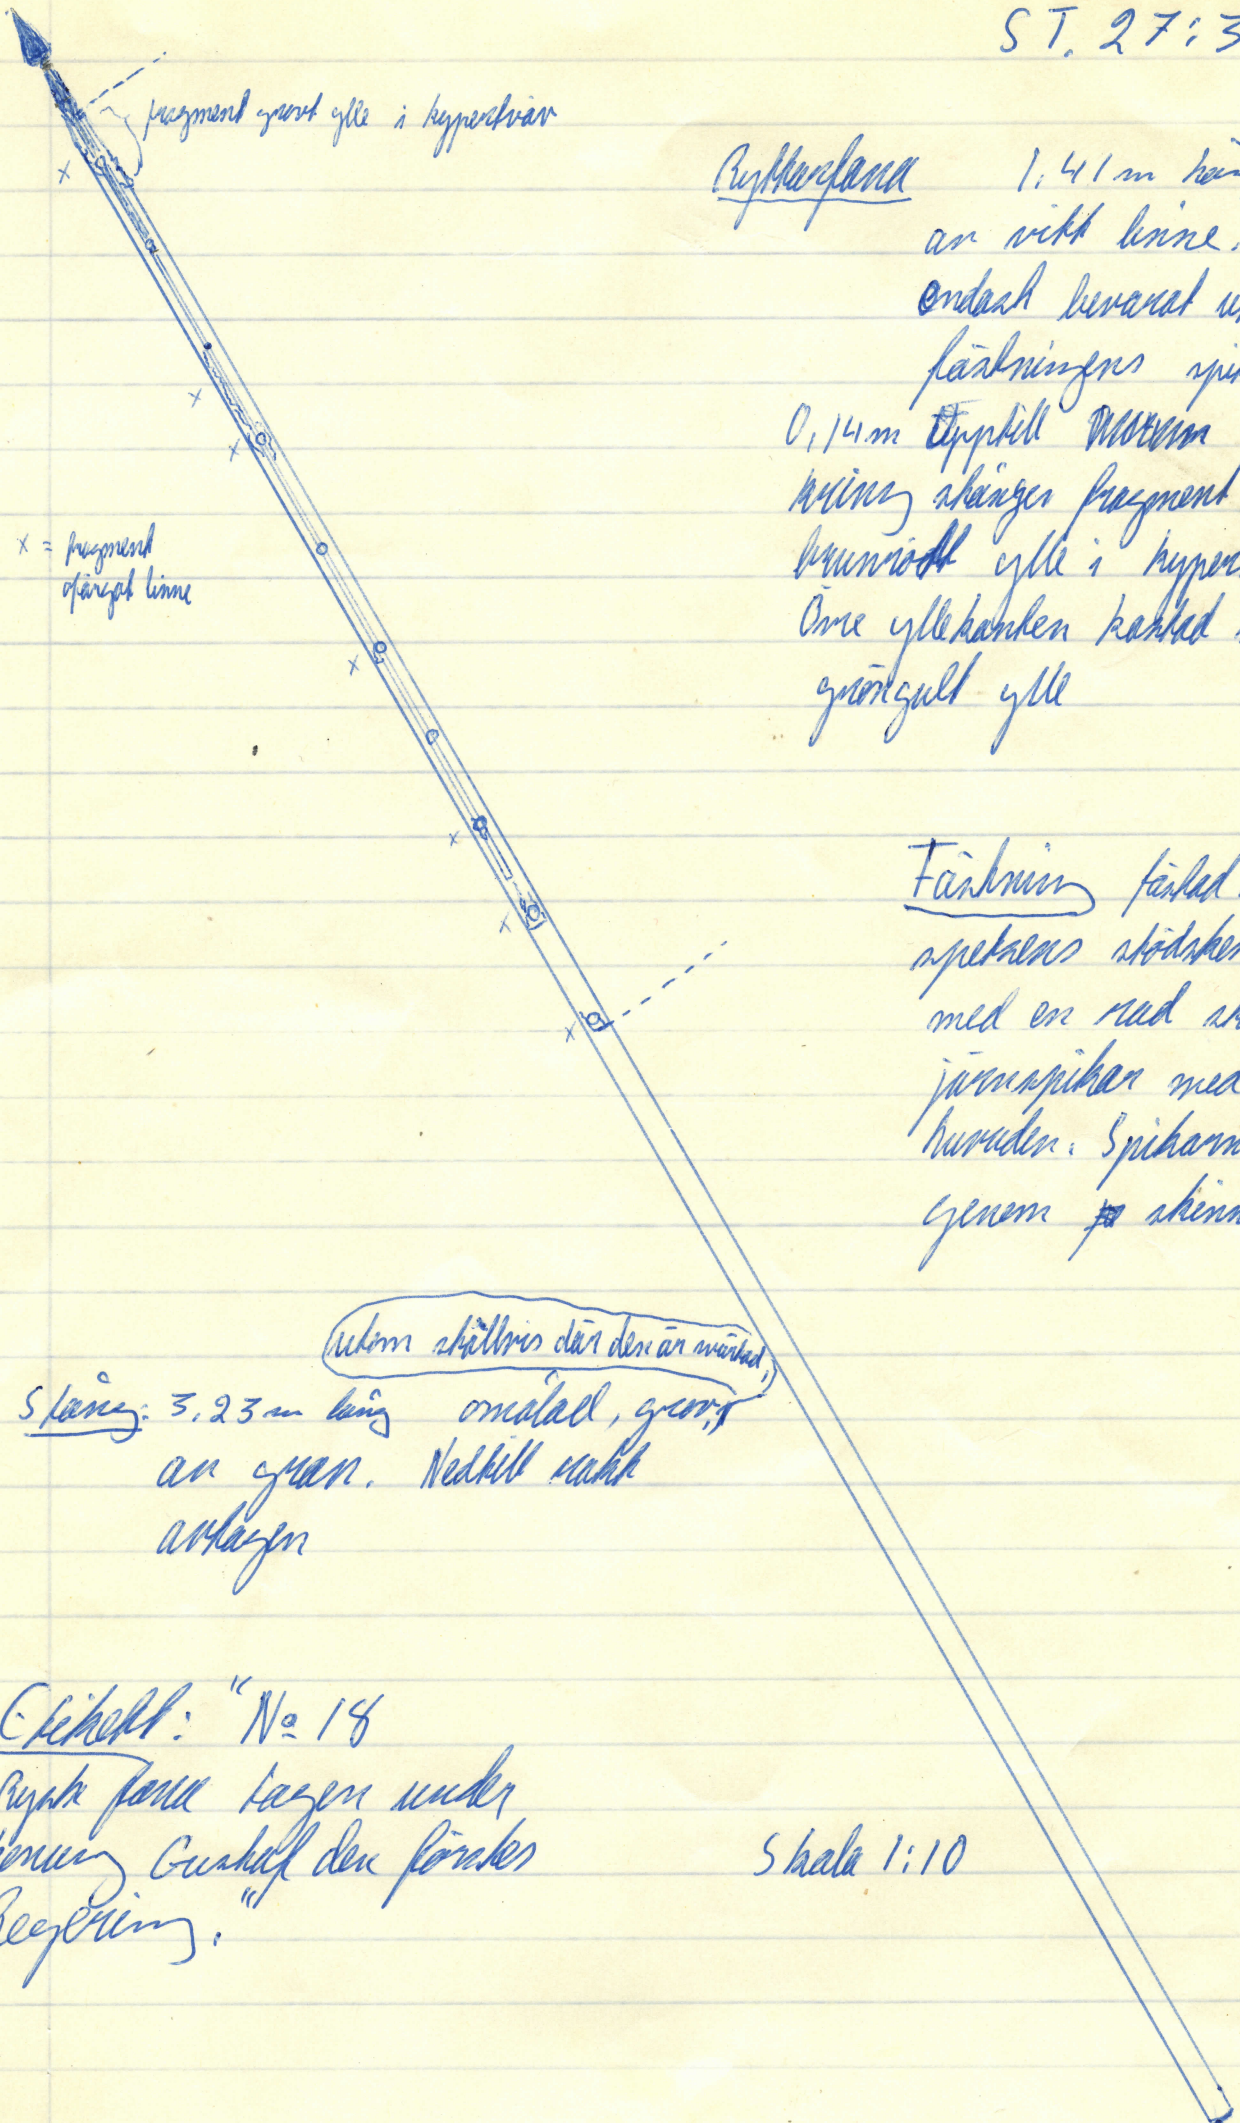 ST. 27:3
fragment grovt ylle i kypertväv
Ryttarfana 1,41 m
av vitt linne.
endast bevarat
fästningens
0,14 m Upptill
kring stången fragment
brunrött ylle i kyper
Övre yllekanten kastad
gröngult ylle
x = fragment
ofärgat linne
Fästning fästad
spetsens stödsken
med en rad
järnspikar med
huvuden. Spikarn
genom skinn
utom ställvis där den är
Stång: 3,23 m lång omålad, grov,
av gran. Nedtill rakt
avtagen
Etikett: "No 18
Rysk fana tagen under
Gustaf den förstes
Regering."
Skala 1:10